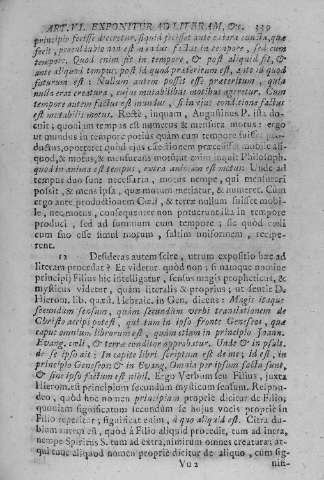 ART. VI. EXPONITUR AD LITERAM, &c. 339
principio fecisse diceretur, si quid fecisset ante cætera cuncta, quæ
fecit, procul dubio non est mundus factus in tempore, sed cum
tempore. Quod enim fit in tempore, & post aliquid fit, &
ante aliquod tempus, post id quod præteritum est, ante id quod
futurum est: Nullum autem posset esse præteritum, quia
nulla erat creatura, cujus mutabilibus motibus ageretur. Cum
tempore autem factus est mundus, si in ejus conditione factus
est mutabilis motus. Rectè, inquam, Augustinus P. ista do-
cuit; quoniam tempus est numerus & mensura motus: ergo
ut mundus in tempore potius quàm cum tempore fuisset pro-
ductus, oporteret quòd ejus effectionem præcessisset mobile ali-
quod, & motus, & mensurans motum: enim inquit Philosoph.
quod in anima est tempus, extra animam est motus. Unde ad
tempus duo sunt necessaria, motus nempe, qui mensurari
possit, & mens ipsa, quæ motum metiatur, & numeret. Cùm
ergo ante productionem Cœli, & terræ nullum fuisset mobi-
le, nec motus, consequenter non potuerunt alia in tempore
produci, sed ad summum cum tempore; sic quod cœli
cum suo esse simul motum, saltim uniformem, recipe-
rent.
12 Desideras autem scire, utrum expositio hæc ad
literam procedat? Et videtur quòd non: si namque nomine
principii Filius hic intelligatur, sensus magis propheticus, &
mysticus videtur, quàm literalis & proprius; ut sentit D.
Hierom. lib. quæst. Hebraic. in Gen. dicens: Magis itaque
secundùm sensum, quàm secundùm verbi translationem de
Christo accipi potest, qui tam in ipso fronte Geneseos, quæ
caput omnium librorum est, quàm etiam in principio Joann.
Evang. cœli, & terræ conditor approbatur. Unde & in psalt.
de se ipso ait: In capite libri scriptum est de me; id est, in
principio Geneseos & in Evang. Omnia per ipsum facta sunt,
& sine ipso factum est nihil. Ergo Verbum seu Filius, juxta
Hierom. est principium secundùm mysticum sensum. Respon-
deo, quòd hoc nomen principium propriè dicitur de Filio;
quoniam significatum secundùm se hujus vocis propriè in
Filio reperitur; significat enim, à quo aliquid est. Citra du-
bium autem est, quòd à Filio aliquid procedit, cum ad intra,
nempe Spiritus S. tum ad extra, nimirum omnes creaturæ: at-
qui tunc aliquod nomen propriè dicitur de aliquo, cùm sig-
Vu 2 nifi-